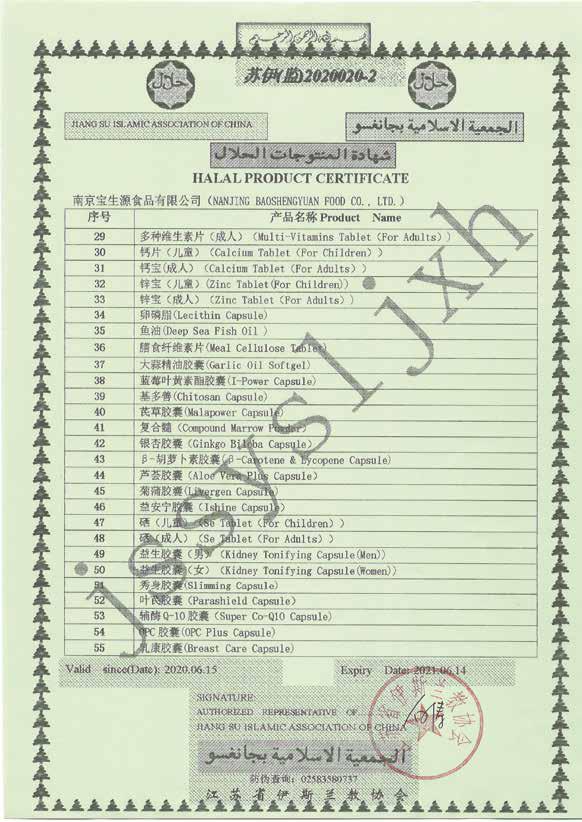 بسم الله الرحمن الرحيم
苏伊(监)2020020-2
حلال
حلال
JIANG SU ISLAMIC ASSOCIATION OF CHINA
الجمعية الاسلامية بجانغسو
شهادة المنتوجات الحلال
HALAL PRODUCT CERTIFICATE
南京宝生源食品有限公司（NANJING BAOSHENGYUAN FOOD CO., LTD.）
序号 产品名称 Product Name
29 多种维生素片（成人）（Multi-Vitamins Tablet（For Adults））
30 钙片（儿童）（Calcium Tablet（For Children））
31 钙宝(成人）（Calcium Tablet（For Adults））
32 锌宝（儿童）(Zinc Tablet(For Children))
33 锌宝（成人）（Zinc Tablet（For Adults））
34 卵磷脂(Lecithin Capsule)
35 鱼油(Deep Sea Fish Oil ）
36 膳食纤维素片(Meal Cellulose Tablet)
37 大蒜精油胶囊(Garlic Oil Softgel)
38 蓝莓叶黄素酯胶囊(I-Power Capsule)
39 基多善(Chitosan Capsule)
40 芪草胶囊(Malapower Capsule)
41 复合髓（Compound Marrow Powder)
42 银杏胶囊（Ginkgo Biloba Capsule)
43 β-胡萝卜素胶囊(β-Carotene & Lycopene Capsule)
44 芦荟胶囊(Aloe Vera Plus Capsule)
45 菊蒲胶囊(Livergen Capsule)
46 益安宁胶囊(Ishine Capsule)
47 硒（儿童）（Se Tablet（For Children））
48 硒（成人）（Se Tablet（For Adults））
49 益生胶囊（男）（Kidney Tonifying Capsule(Men))
50 益生胶囊（女）（Kidney Tonifying Capsule(Women))
51 秀身胶囊(Slimming Capsule)
52 叶芪胶囊（Parashield Capsule)
53 辅酶Q-10胶囊（Super Co-Q10 Capsule)
54 OPC胶囊(OPC Plus Capsule)
55 乳康胶囊(Breast Care Capsule)
jssysljxh
Valid since(Date): 2020.06.15 Expiry Date: 2021.06.14
SIGNATURE:
AUTHORIZED REPRESENTATIVE OF
JIANG SU ISLAMIC ASSOCIATION OF CHINA
الجمعية الاسلامية بجانغسو
防伪查询：02583580737
江苏省伊斯兰教协会
江苏省伊斯兰教协会